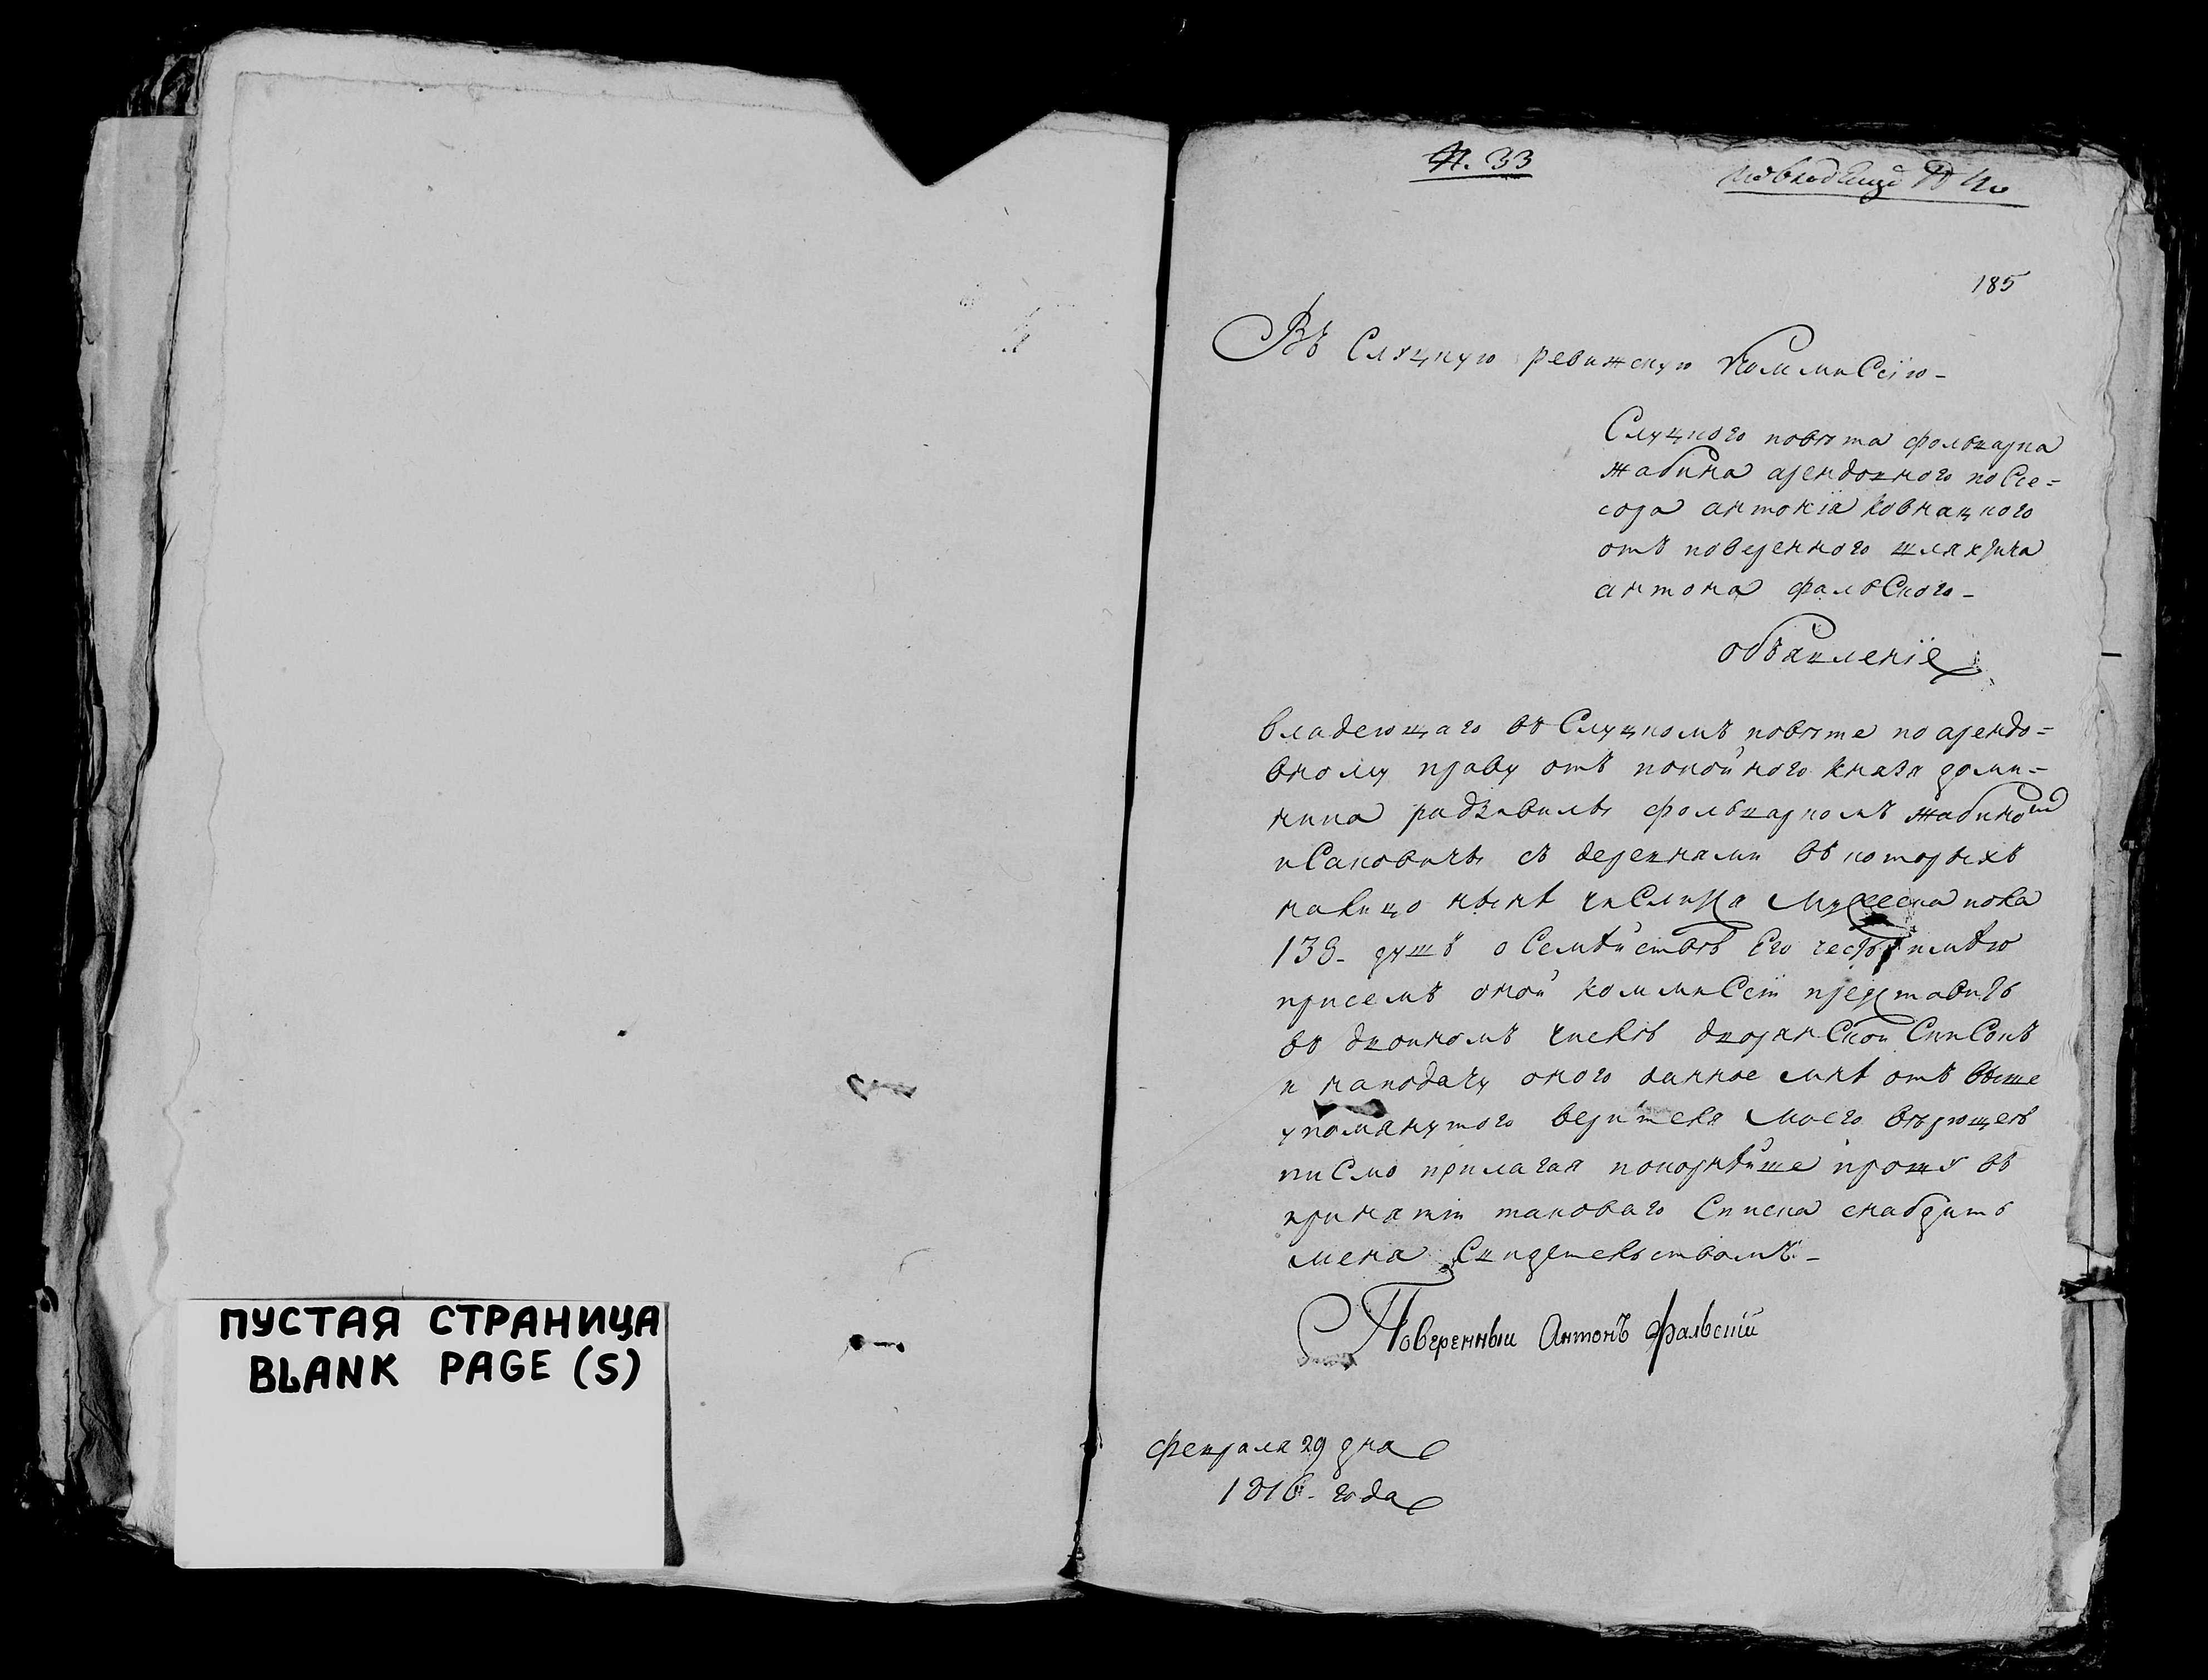 ПУСТАЯ СТРАНИЦА
BLANK PAGE (S)
№. 33
185
Въ Слуцкую ревижскую Коммиссїю -
Слуцкого повѣта фольварка
жабина арендовного поссе=
сора антонїа ковнацкого
отъ поверенного шляхтича
антона фальского -
объявленїе
владеющаго въ Слуцкомъ повѣте по арендо=
вному праву отъ покойного князя доми=
ника радзивилы фольваркомъ
и Саковичы съ деревнями въ которыхъ
налицо нынѣ числится мужеска пола
139 - душъ о Семѣйствѣ Его честь имѣю
присемъ оной коммиссїи представить
въ двоиномъ числѣ дворянской Списокъ
и наподачу оного данное мнѣ отъ выше
упомянутого верителя моего вѣрющеѣ
писмо прилагая покорнѣйше прошу въ
принятїи таковаго Списка снабдить
меня Свидетельствомъ -
Поверенныи Антонъ Фальскїй
февраля 29 дня
1816 - года